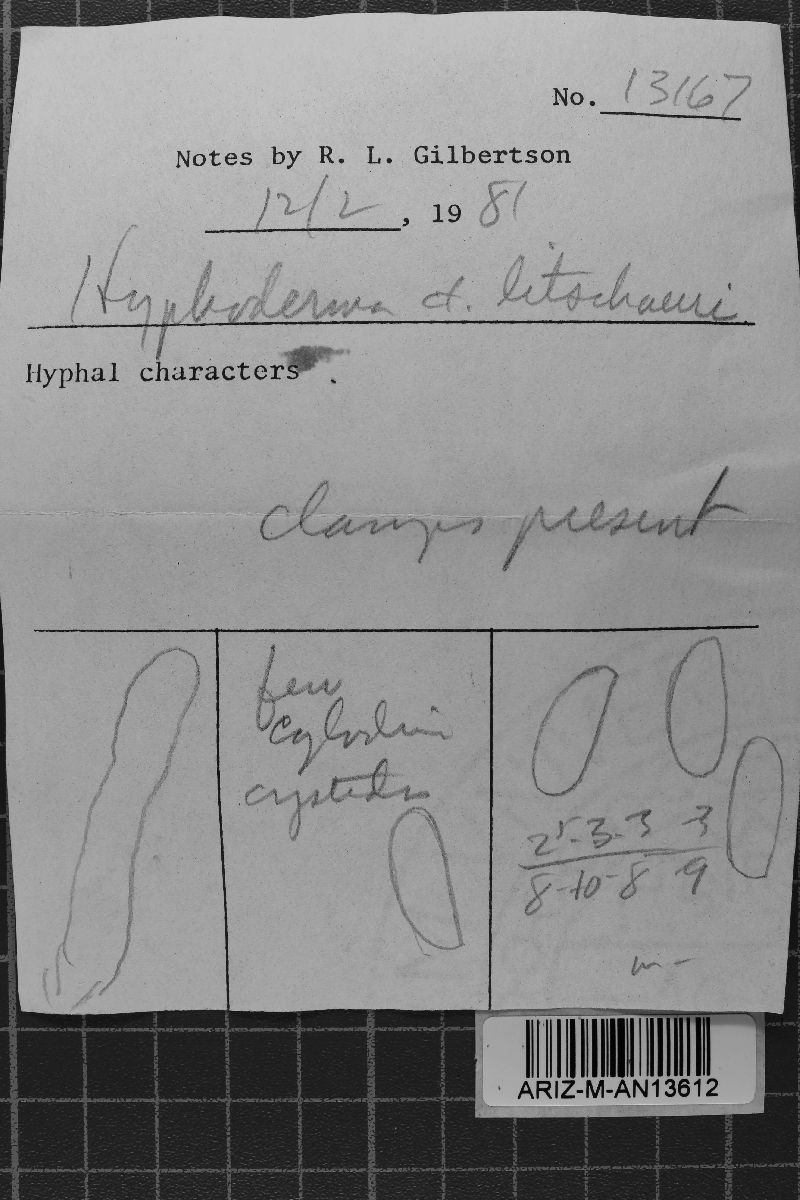 No. 13167
Notes by R. L. Gilbertson
12/2, 1981
Hyphoderma cf. litschaueri
Hyphal characters
clamps present
few
cylindric
cystidia
25-3-3 3
8-10-8 9